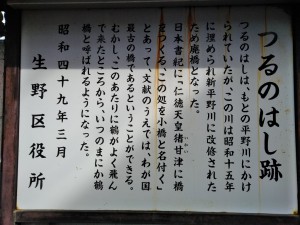 つるのはし跡
つるのはしは、もとの平野川にかけ
られていたが、この川は昭和十五年
に埋められ新平野川に改修された
ため廃橋となった。
日本書紀に「仁徳天皇猪甘津に橋
をつくる、この処を小橋と名付く」
とあって、文献のうえでは、わが国
最古の橋であるということができる。
むかし、このあたりに鶴がよく飛ん
で来たところから、いつのまにか鶴
橋と呼ばれるようになった。
昭和四十九年三月
生野区役所